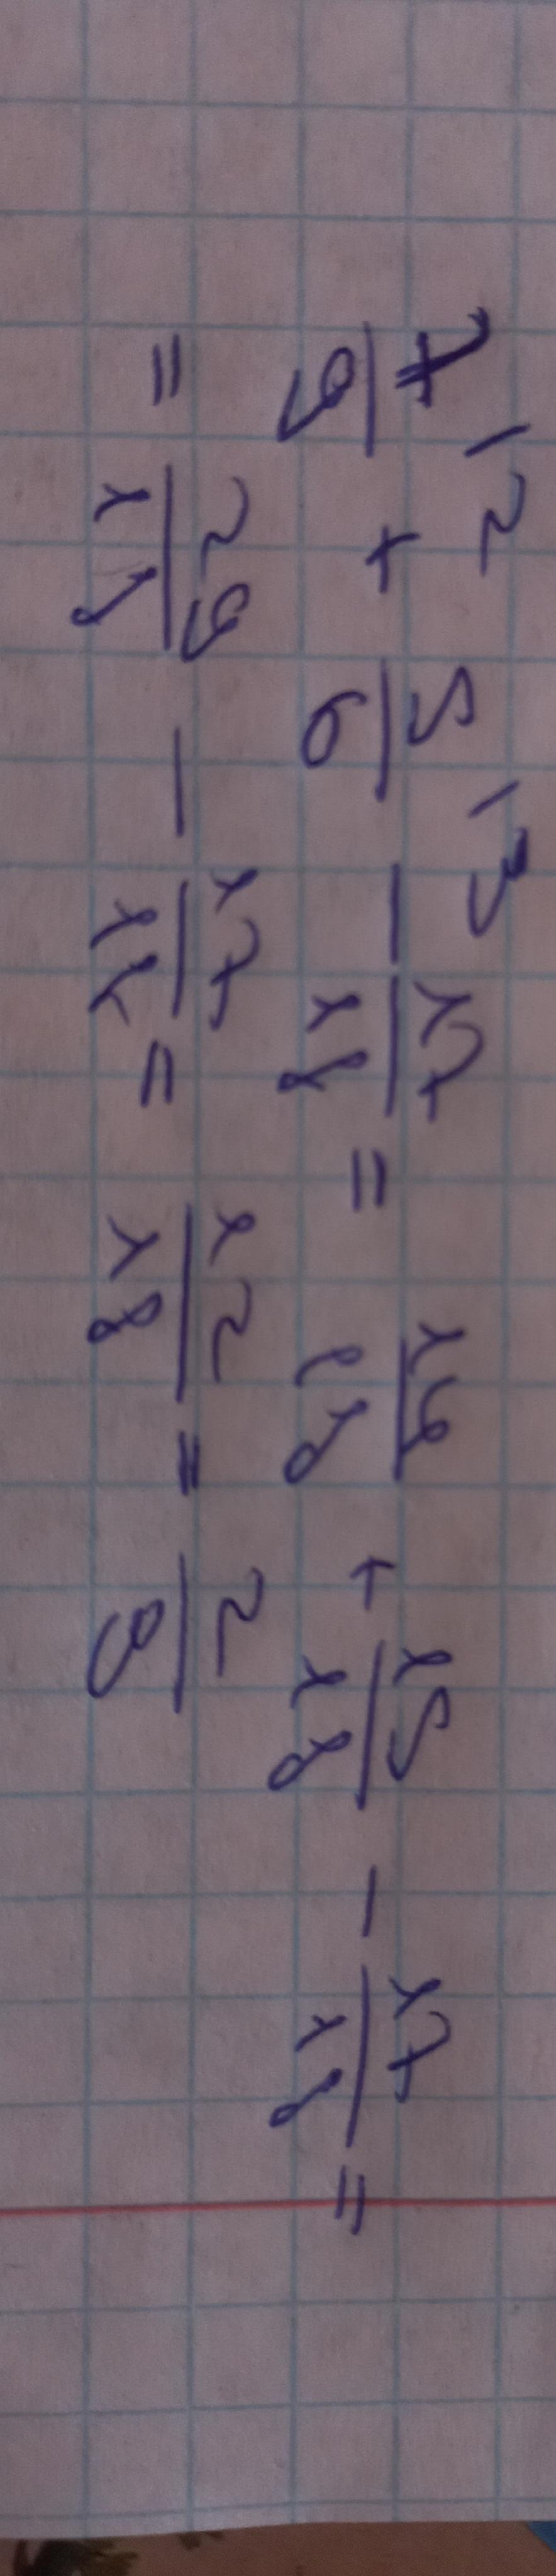 7/9 \2 + 5/6 \3 - 17/18 = 14/18 + 15/18 - 17/18 =
= 29/18 - 17/18 = 12/18 = 2/9